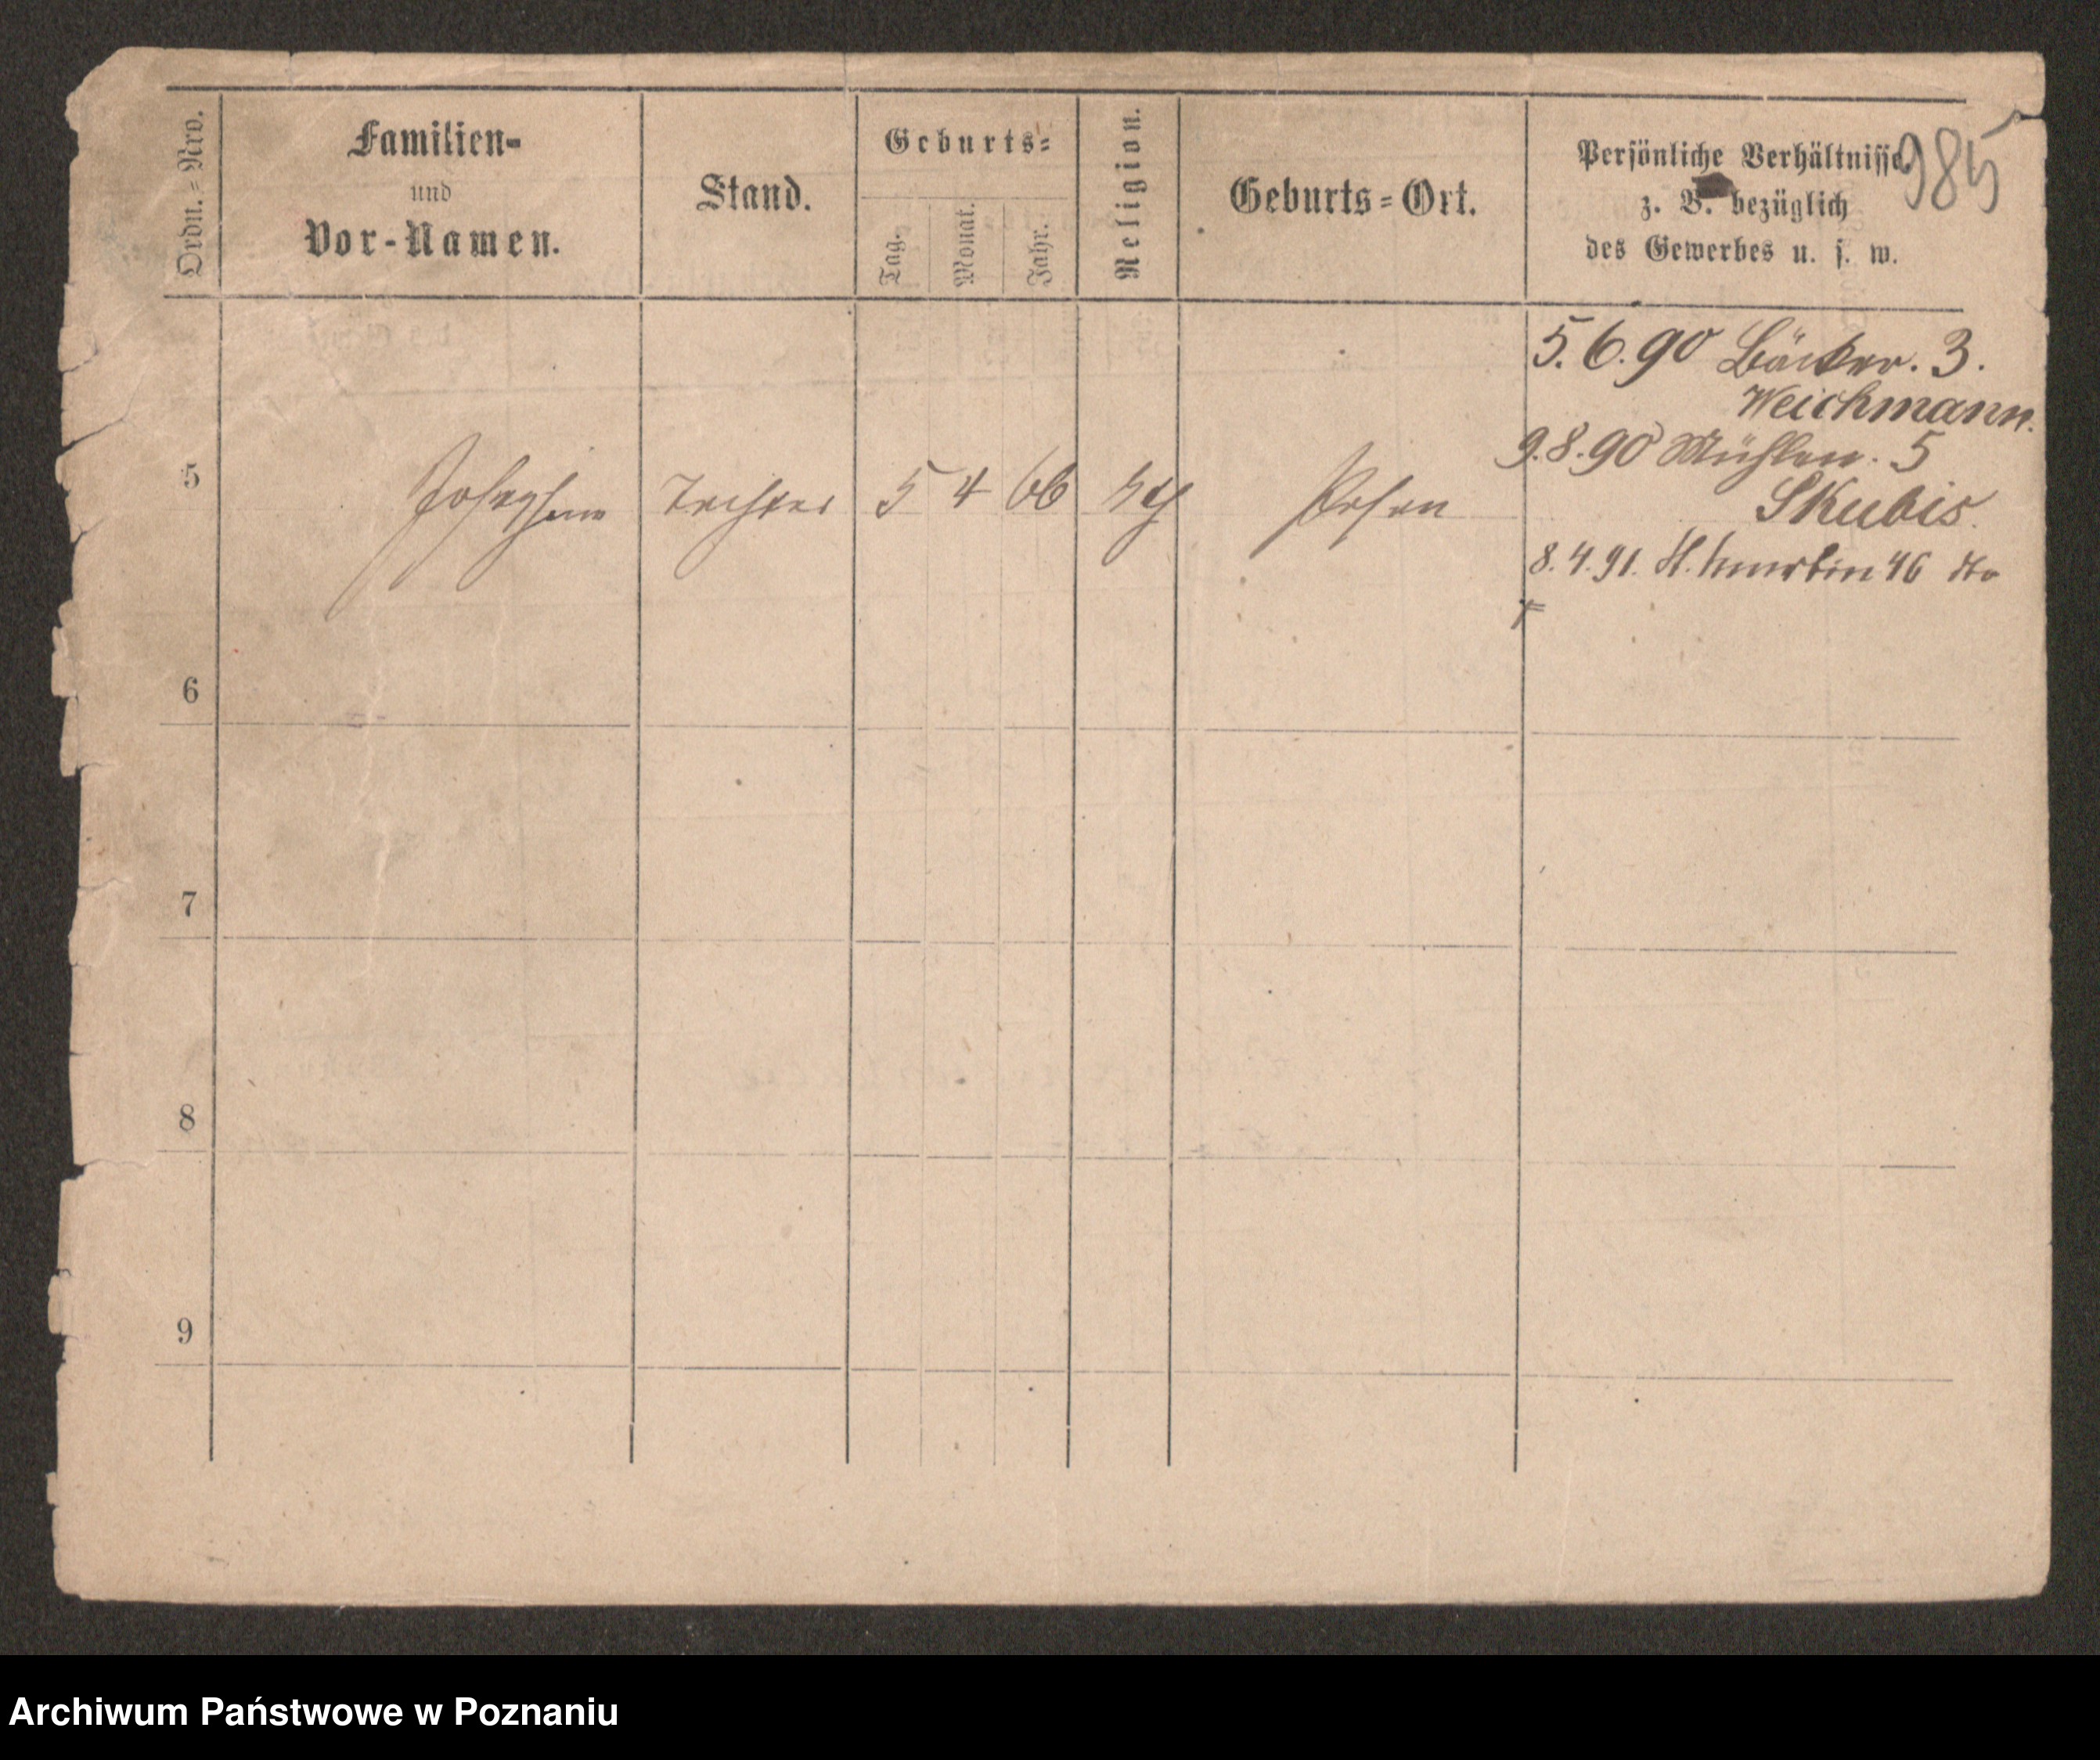 985
Ordn.=Nro.
Familien-
und
Vor-Namen.
Stand.
Geburts=
Tag.
Monat.
Jahr.
Religion.
Geburts=Ort.
Persönliche Verhältnisse,
z. B. bezüglich
des Gewerbes u. s. w.
5.6.90 Bäcker. 3.
Weichmann.
9.8.90 Mühlen. 5
Skubis.
5 Josephine Tochter 5 4 66 Posen
8.4.91. St. Martin 46
6
7
8
9
Archiwum Państwowe w Poznaniu